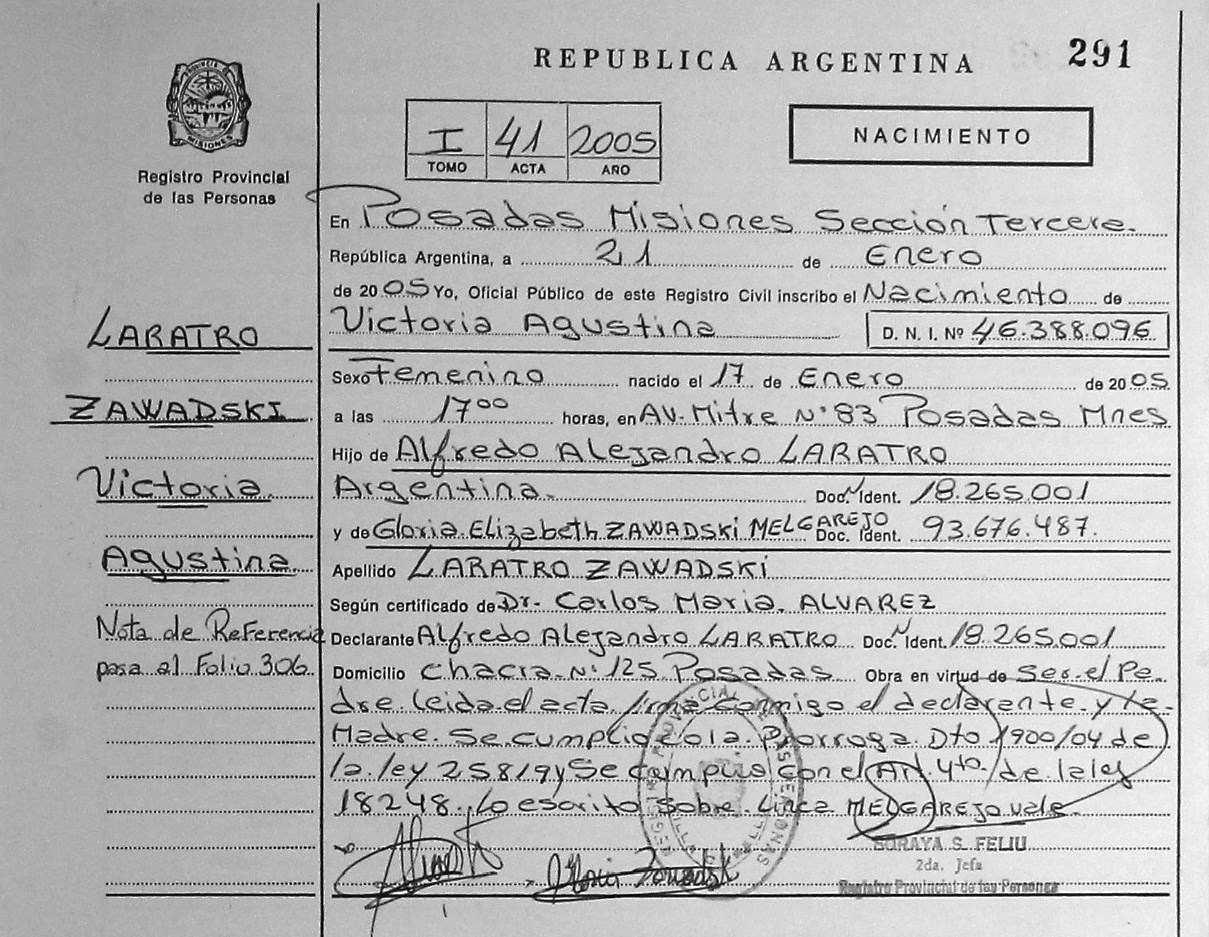 REPUBLICA ARGENTINA
291
PROVINCIA DE
MISIONES
Registro Provincial
de las Personas
I 41 2005
TOMO ACTA AÑO
NACIMIENTO
En Posadas Misiones Sección Tercera.
República Argentina, a 21 de Enero
de 2005 Yo, Oficial Público de este Registro Civil inscribo el Nacimiento de
Victoria Agustina D. N. I. Nº 46.388.096
Sexo Femenino nacido el 17 de Enero de 2005
a las 17⁰⁰ horas, en AV. Mitre Nº 83 Posadas Mnes
Hijo de Alfredo Alejandro LARATRO
Argentina. Doc. N Ident. 18.265.001
y de Gloria Elizabeth ZAWADSKI MELGAREJO Doc. Ident. 93.676.487.
Apellido LARATRO ZAWADSKI
Según certificado de Dr. Carlos Maria ALVAREZ
Declarante Alfredo Alejandro LARATRO Doc. N Ident. 18.265.001
Domicilio Chacra Nº 125 Posadas Obra en virtud de Ser el Pa-
dre. Leida el acta firma conmigo el declarante y la
Madre. Se cumplio la Prorroga Dto 1900/04 de
la ley 25819 y Se cumplio con el Art. 4to de la ley
18248. Lo escrito Sobre Linea MELGAREJO vale.
LARATRO
ZAWADSKI
Victoria
Agustina
Nota de Referencia
pasa al Folio 306
REGISTRO PROVINCIAL DE LAS PERSONAS
SORAYA S. FELIU
2da. Jefa
Registro Provincial de las Personas